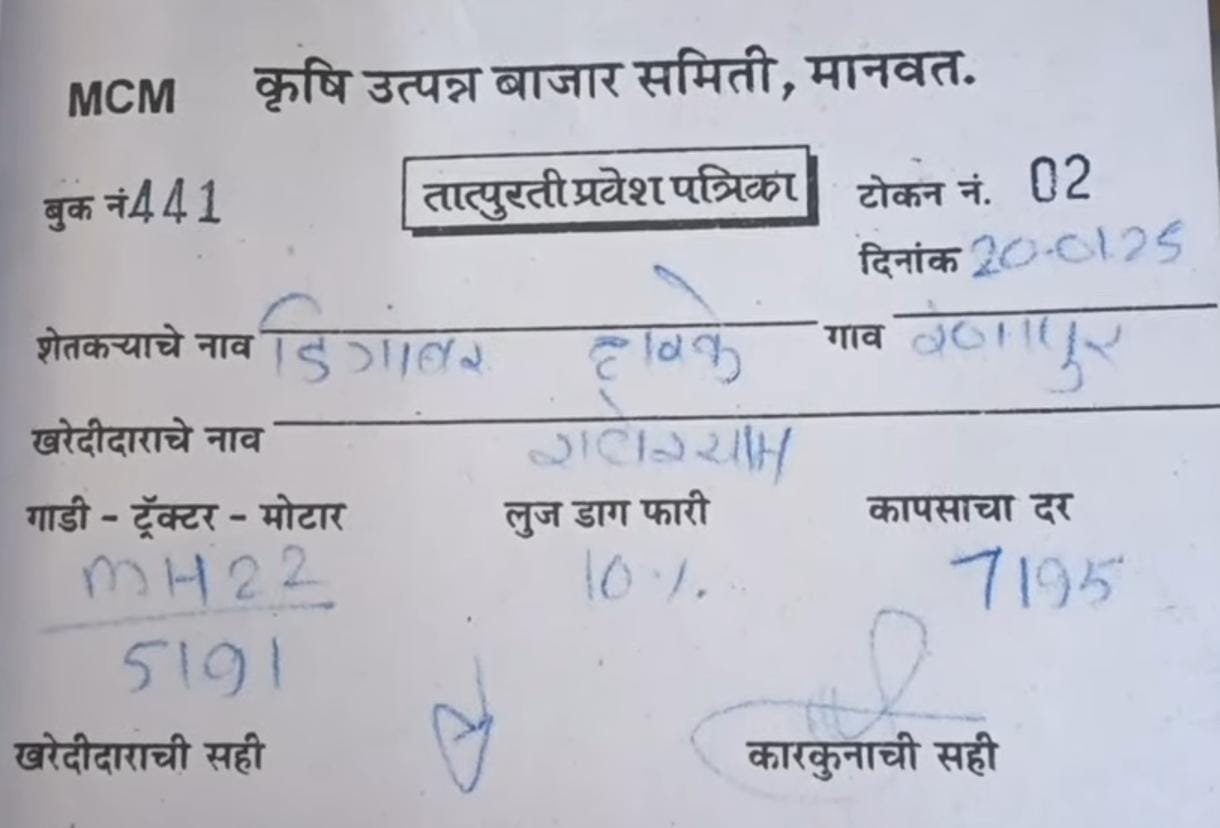 MCM कृषि उत्पन्न बाजार समिती, मानवत.
बुक नं 441 तात्पुरती प्रवेश पत्रिका टोकन नं. 02
दिनांक 20-01-25
शेतकऱ्याचे नाव डिगांबर गाव
खरेदीदाराचे नाव राधेश्याम
गाडी - ट्रॅक्टर - मोटार लुज डाग फारी कापसाचा दर
MH22 10%. 7195
5191
खरेदीदाराची सही कारकुनाची सही